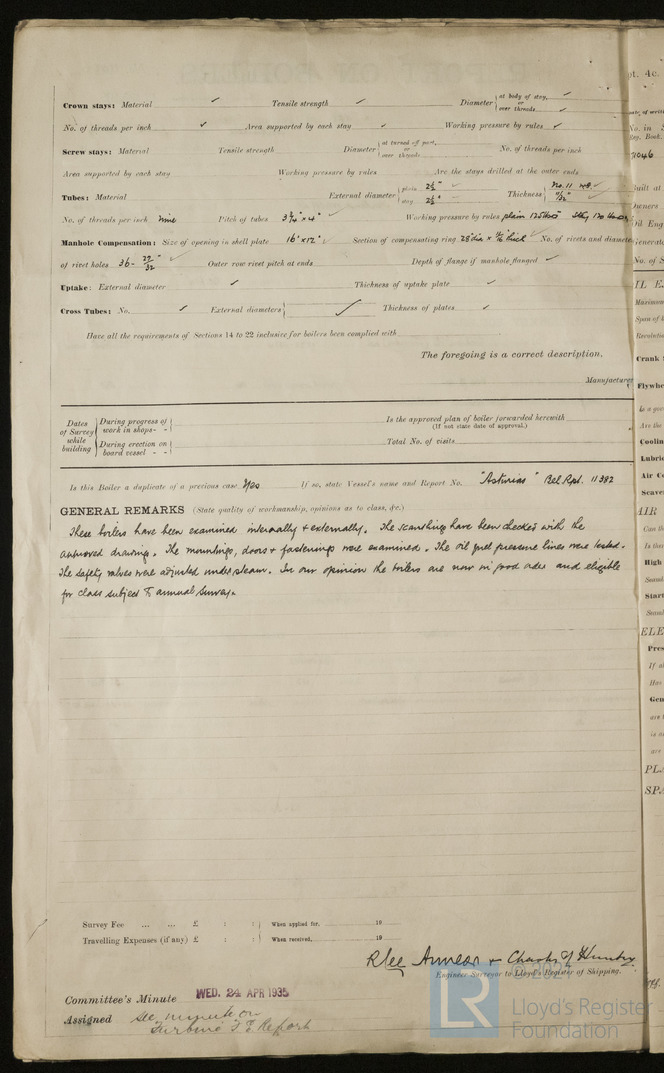 Crown stays: Material ✓ Tensile strength ✓ Diameter { at body of stay, or over threads ✓
No. of threads per inch ✓ Area supported by each stay ✓ Working pressure by rules ✓
Screw stays: Material Tensile strength Diameter { at turned off part, or over threads No. of threads per inch
Area supported by each stay Working pressure by rules Are the stays drilled at the outer ends
Tubes: Material External diameter { plain 2½" stay 2½" Thickness { No. 11 WG. 11/32"
No. of threads per inch nine Pitch of tubes 3¾" x 4" Working pressure by rules plain
Manhole Compensation: Size of opening in shell plate 16" x 12" Section of compensating ring 28" dia x thick No. of rivets and diameter
of rivet holes 36 - 27/32" Outer row rivet pitch at ends Depth of flange if manhole flanged ✓
Uptake: External diameter ✓ Thickness of uptake plate ✓
Cross Tubes: No. ✓ External diameters { ✓ Thickness of plates ✓
Have all the requirements of Sections 14 to 22 inclusive for boilers been complied with
The foregoing is a correct description,
Manufacturer
Dates of Survey while building { During progress of work in shops - - {
During erection on board vessel - - {
Is the approved plan of boiler forwarded herewith
(If not state date of approval.)
Total No. of visits
Is this Boiler a duplicate of a previous case Yes If so, state Vessel's name and Report No. "Asturias" Bel. Rpt. 11382
GENERAL REMARKS (State quality of workmanship, opinions as to class, &c.)
These boilers have been examined internally & externally. The scantlings have been checked with the
approved drawings. The mountings, doors & fastenings were examined. The oil fuel pressure lines were tested.
The safety valves were adjusted under steam. In our opinion the boilers are now in good order and eligible
for class subject to annual survey.
Survey Fee ... ... £ : : { When applied for, 19
Travelling Expenses (if any) £ : : { When received, 19
R Lee Amness & Charles J Hunter
Engineer Surveyor to Lloyd's Register of Shipping.
Committee's Minute WED. 24 APR 1935
Assigned See minute on
Turbine F.E. Report
© 2021
LR
Lloyd's Register
Foundation
pt. 4c.
No. in
Reg. Book.
7046
Built at
Owners
Oil Eng
Generator
No. of S
IL E
Maximum
Span of b
Revolutio
Crank
Flywhe
Is a gov
Are the
Coolin
Lubric
Air Co
Scave
AIR
Can th
Is the
High
Seaml
Start
Seaml
ELE
Pres
If s
Has
Gen
are t
is a
are
PLA
SPA